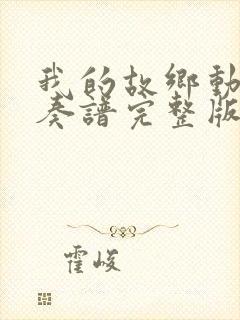 我的故鄉動
奏譜完整版
霍峻